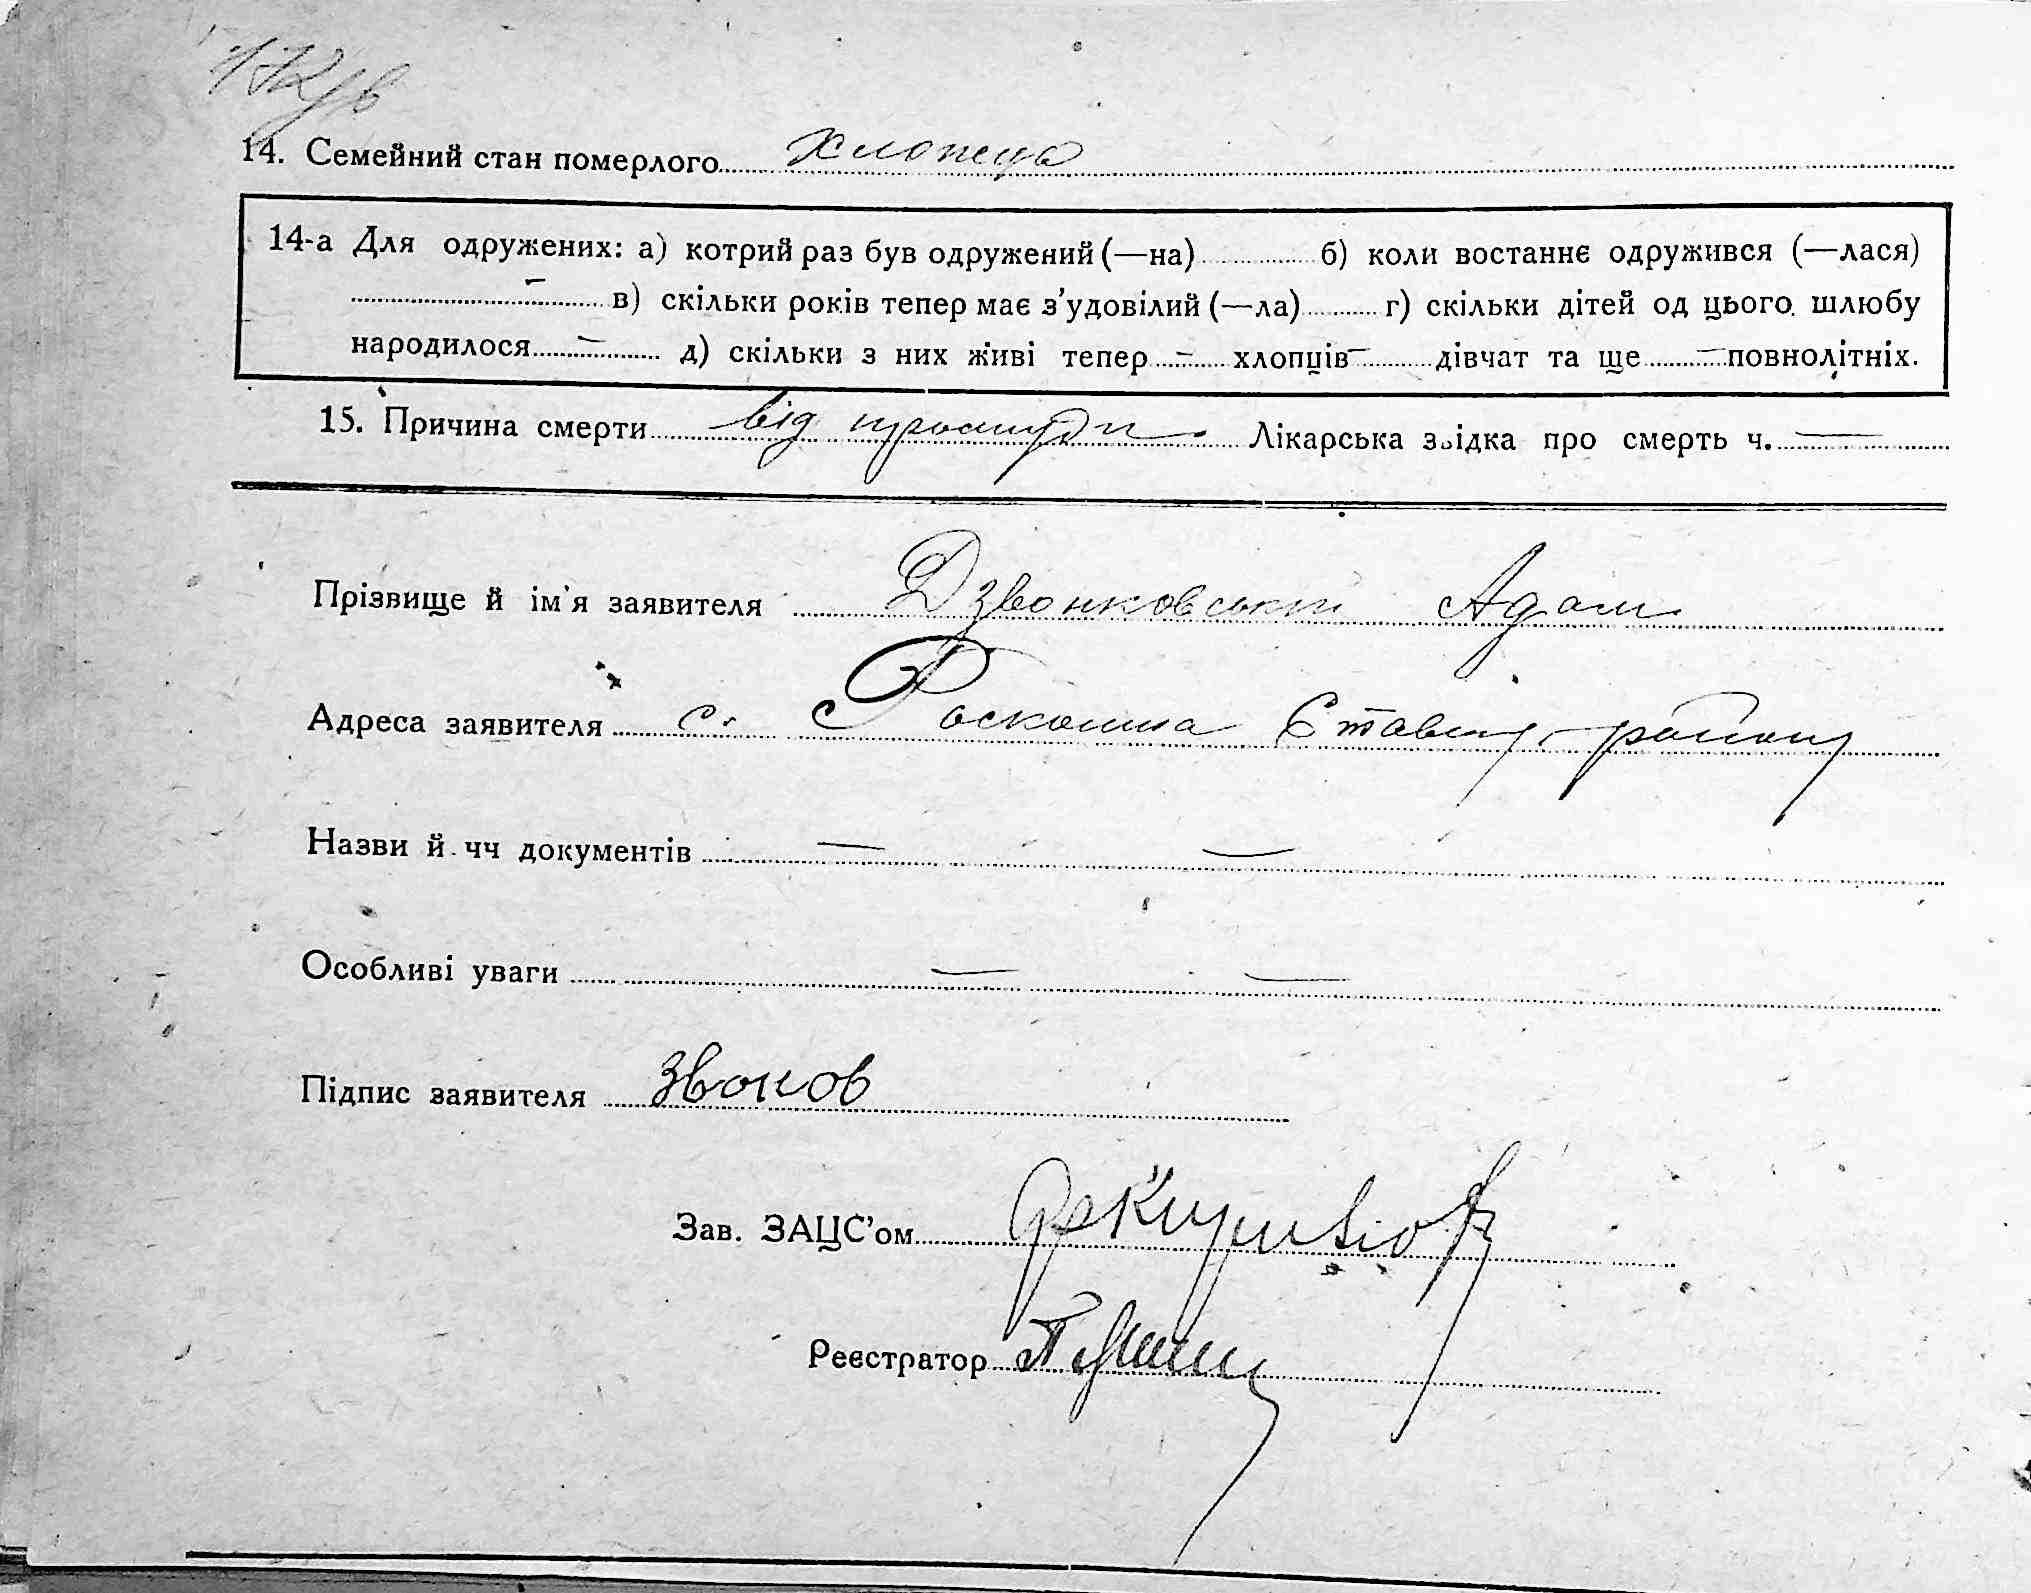 14. Семейний стан померлого хлопець
14-а Для одружених: а) котрий раз був одружений (—на) б) коли востаннє одружився (—лася)
— в) скільки років тепер має з'удовілий (—ла) г) скільки дітей од цього шлюбу
народилося — д) скільки з них живі тепер — хлопців — дівчат та ще — повнолітніх.
15. Причина смерти від простуди. Лікарська звідка про смерть ч. —
Прізвище й ім'я заявителя Дзвонковський Адам
Адреса заявителя с. Роскошна Ставищ. району
Назви й чч документів — —
Особливі уваги — —
Підпис заявителя Звонов
Зав. ЗАЦС'ом
Реєстратор